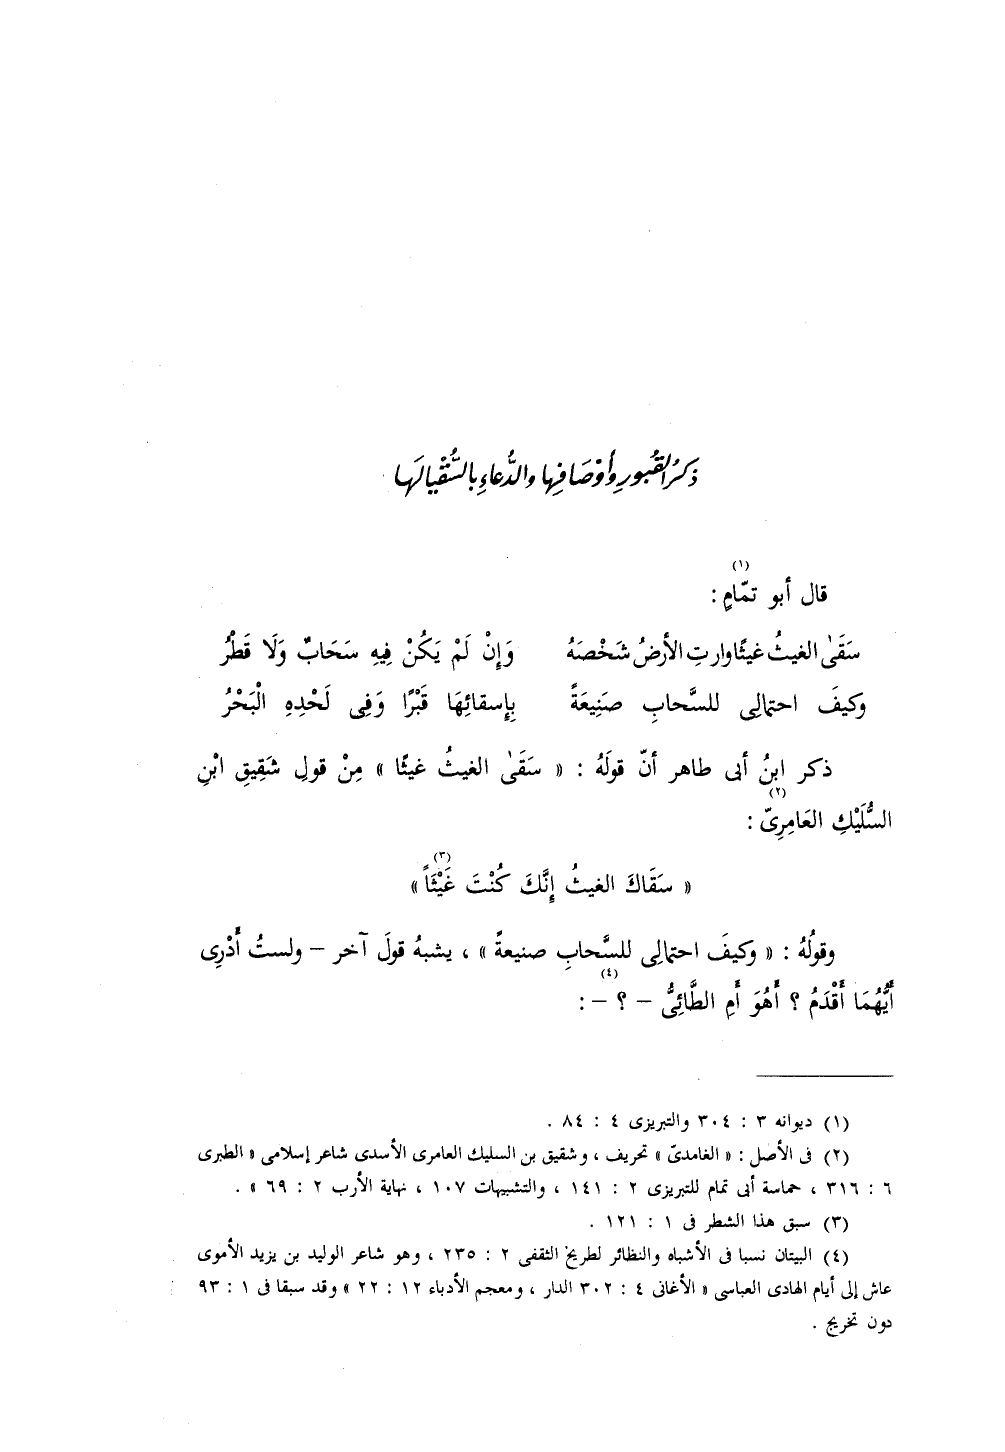 ذكرُ القُبورِ وأوْصَافِها والدُّعاءِ بالسُّقْيا لَها
قال أبو تمّامٍ (١) :
سَقَى الغيثُ غيثًا وارتِ الأرضُ شَخْصَهُ وَإِنْ لَمْ يَكُنْ فِيهِ سَحَابٌ وَلَا قَطْرُ
وكيفَ احتمالِى للسَّحابِ صَنِيعَةً بِإِسقائِهَا قَبْرًا وَفِى لَحْدِهِ الْبَحْرُ
ذكر ابنُ أبى طاهر أنّ قولَهُ : « سَقَى الغيثُ غيثًا » مِنْ قولِ شَقِيقِ ابْنِ
السُّلَيْكِ العَامِرِىّ (٢) :
« سَقَاكَ الغيثُ إِنَّكَ كُنْتَ غَيْثَاً (٣) »
وقولُهُ : « وكيفَ احتمالِى للسَّحابِ صنيعةً » ، يشبهُ قولَ آخر – ولستُ أَدْرِى
أَيُّهُمَا أَقْدَمُ ؟ أَهُوَ أَمِ الطَّائِىُّ (٤) – ؟ – :
(١) ديوانه ٣ : ٣٠٤ والتبريزى ٤ : ٨٤ .
(٢) فى الأصل : « الغامدىّ » تحريف ، وشقيق بن السليك العامرى الأسدى شاعر إسلامى « الطبرى
٦ : ٣١٦ ، حماسة أبى تمام للتبريزى ٢ : ١٤١ ، والتشبيهات ١٠٧ ، نهاية الأرب ٢ : ٦٩ » .
(٣) سبق هذا الشطر فى ١ : ١٢١ .
(٤) البيتان نسبا فى الأشباه والنظائر لطريح الثقفى ٢ : ٢٣٥ ، وهو شاعر الوليد بن يزيد الأموى
عاش إلى أيام الهادى العباسى « الأغانى ٤ : ٣٠٢ الدار ، ومعجم الأدباء ١٢ : ٢٢ » وقد سبقا فى ١ : ٩٣
دون تخريج .